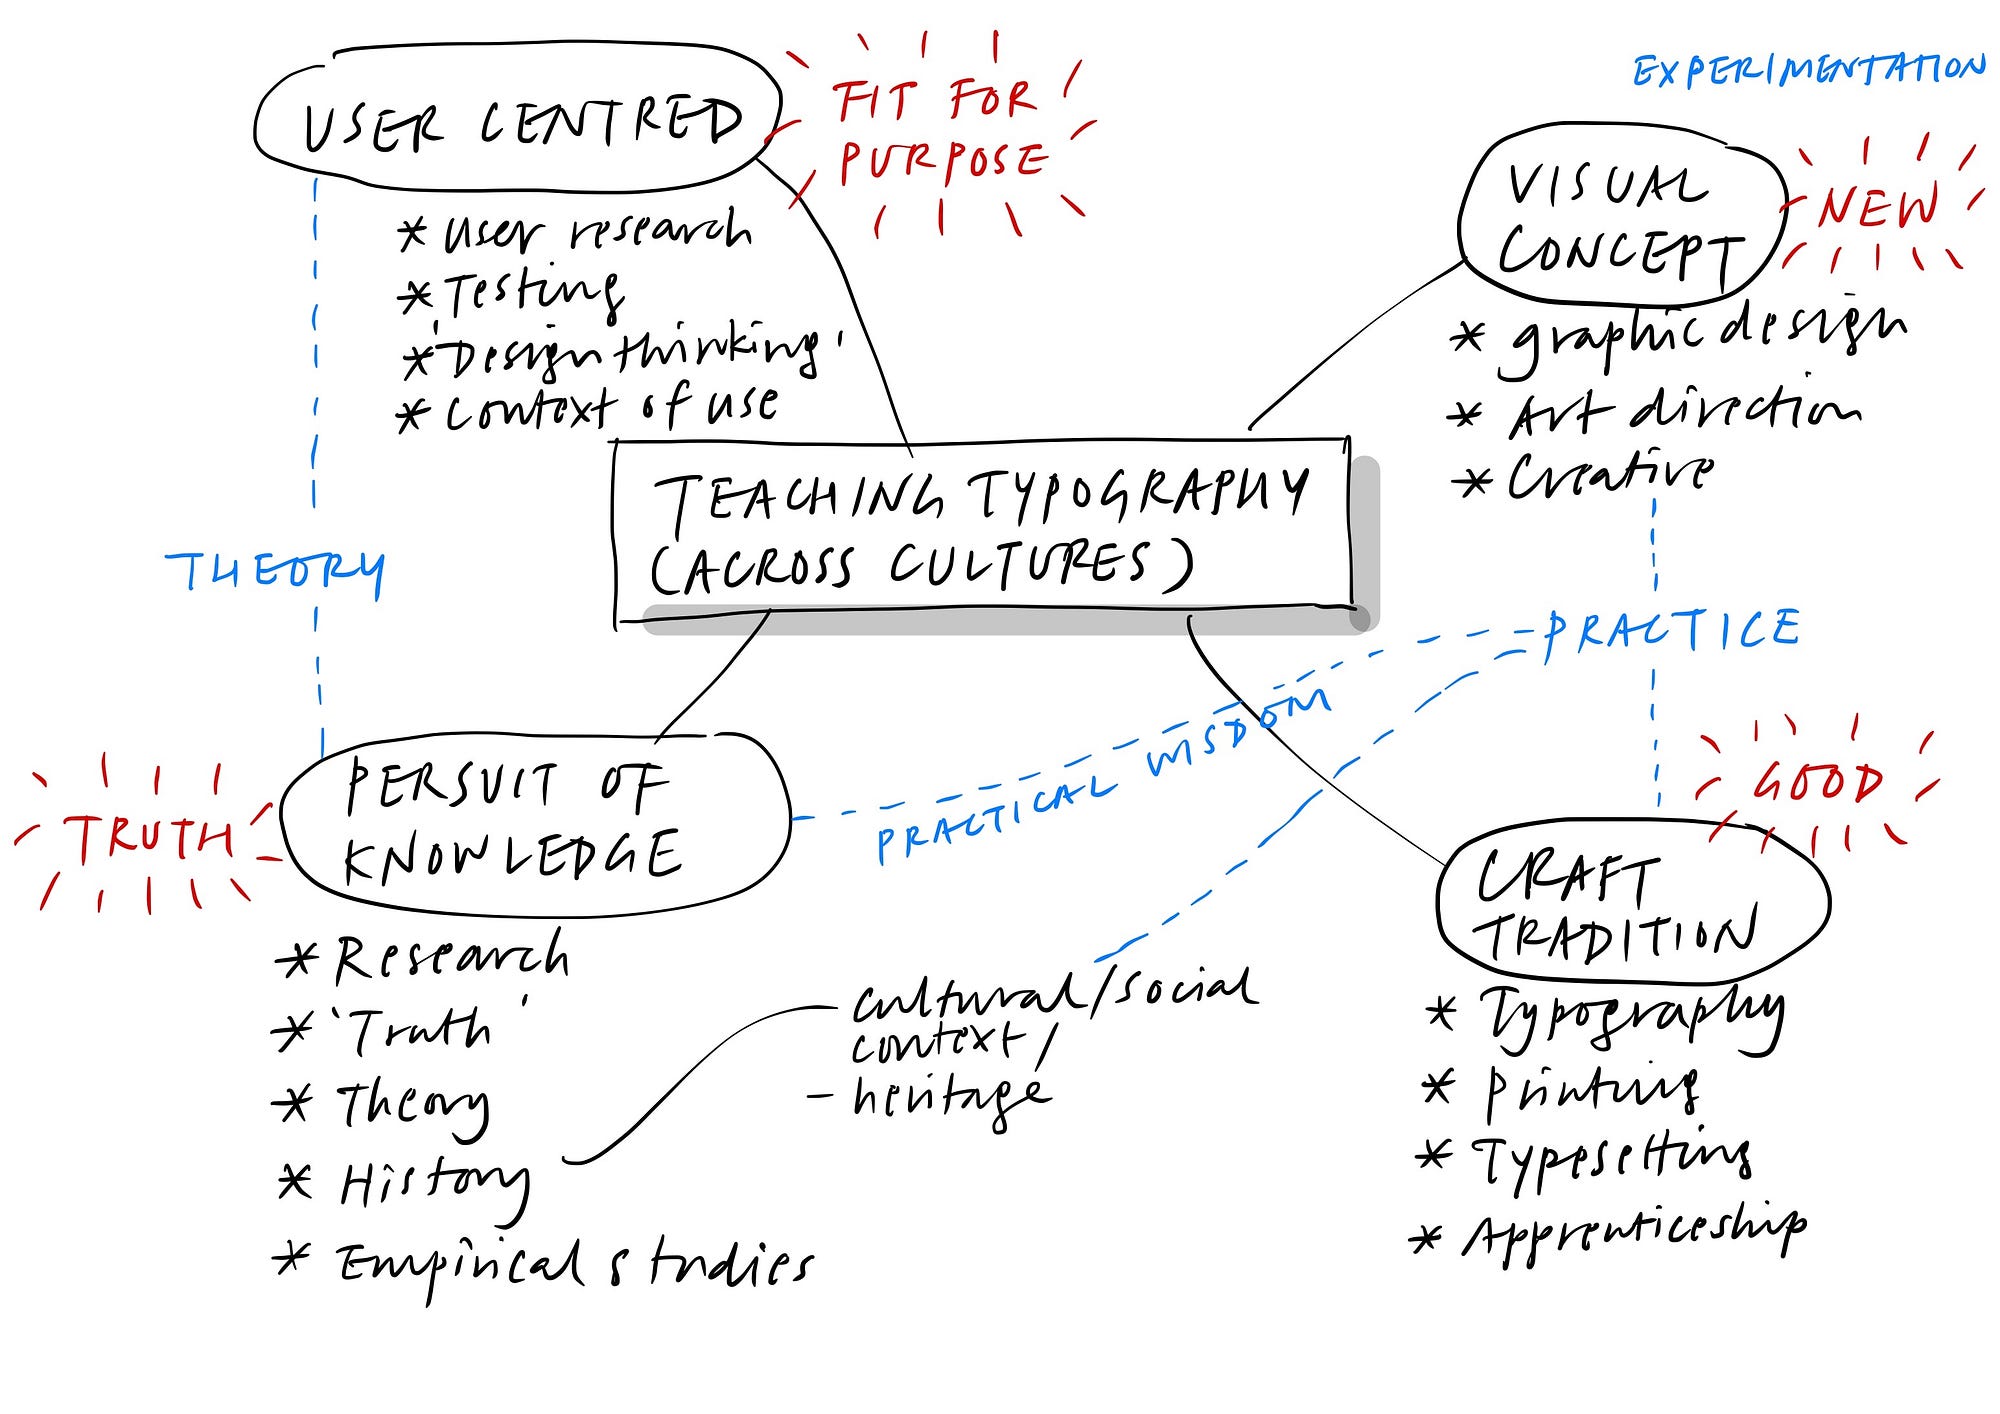 USER CENTRED
FIT FOR
PURPOSE
* User research
* Testing
* 'Design thinking'
* Context of use
EXPERIMENTATION
VISUAL
CONCEPT
NEW
* graphic design
* Art direction
* Creative
TEACHING TYPOGRAPHY
(ACROSS CULTURES)
THEORY
PRACTICE
PRACTICAL WISDOM
TRUTH
PERSUIT OF
KNOWLEDGE
* Research
* 'Truth'
* Theory
* History
* Empirical studies
cultural/social
context/
- heritage
GOOD
CRAFT
TRADITION
* Typography
* Printing
* Typesetting
* Apprenticeship